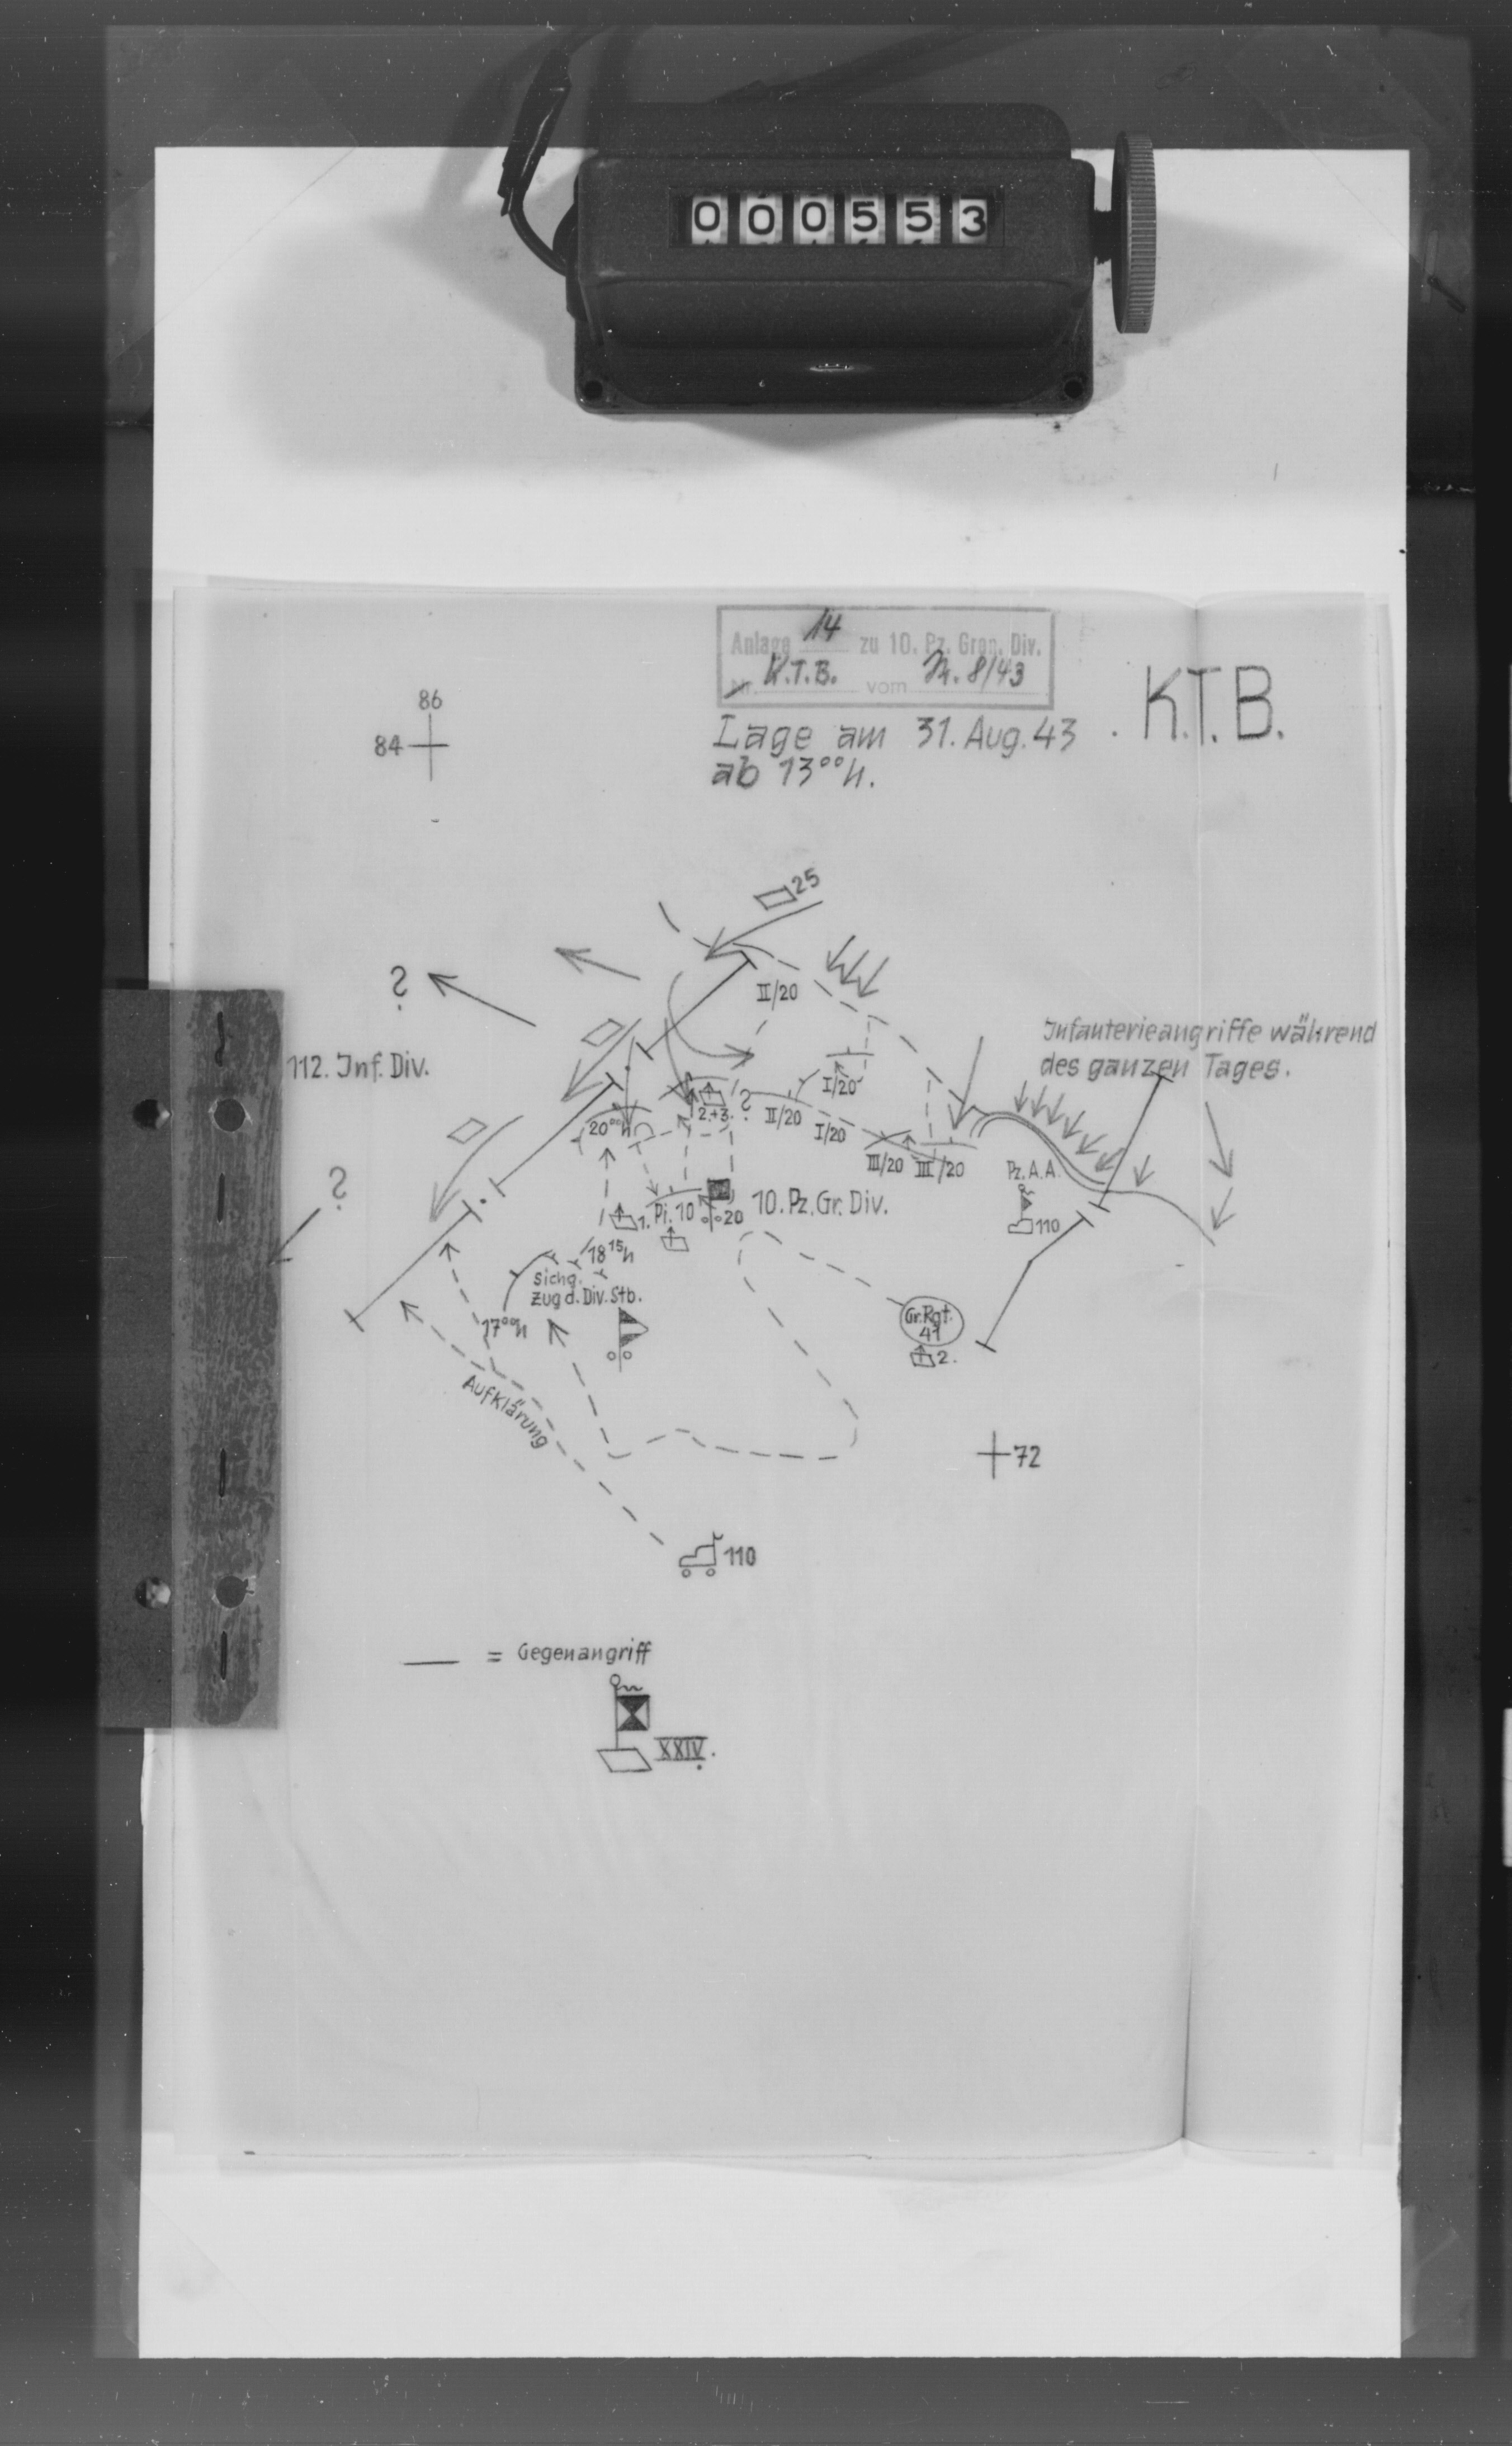 000553
Anlage 14 zu 10. Pz. Gren. Div.
Nr. K.T.B. vom Nr. 8/43
K.T.B.
Lage am 31. Aug. 43.
ab 13⁰⁰h.
86
84
25
II/20
?
Infanterieangriffe während
des ganzen Tages.
112. Inf. Div.
I/20
2.+3.
?
II/20
20⁰⁰h
I/20
III/20
III/20
Pz. A. A.
?
1.
Pi. 10
20
10. Pz. Gr. Div.
110
18¹⁵h
Sichg.
Zug d. Div. Stb.
17⁰⁰h
Gr. Rgt.
41
2.
Aufklärung
72
110
= Gegenangriff
XXIV.